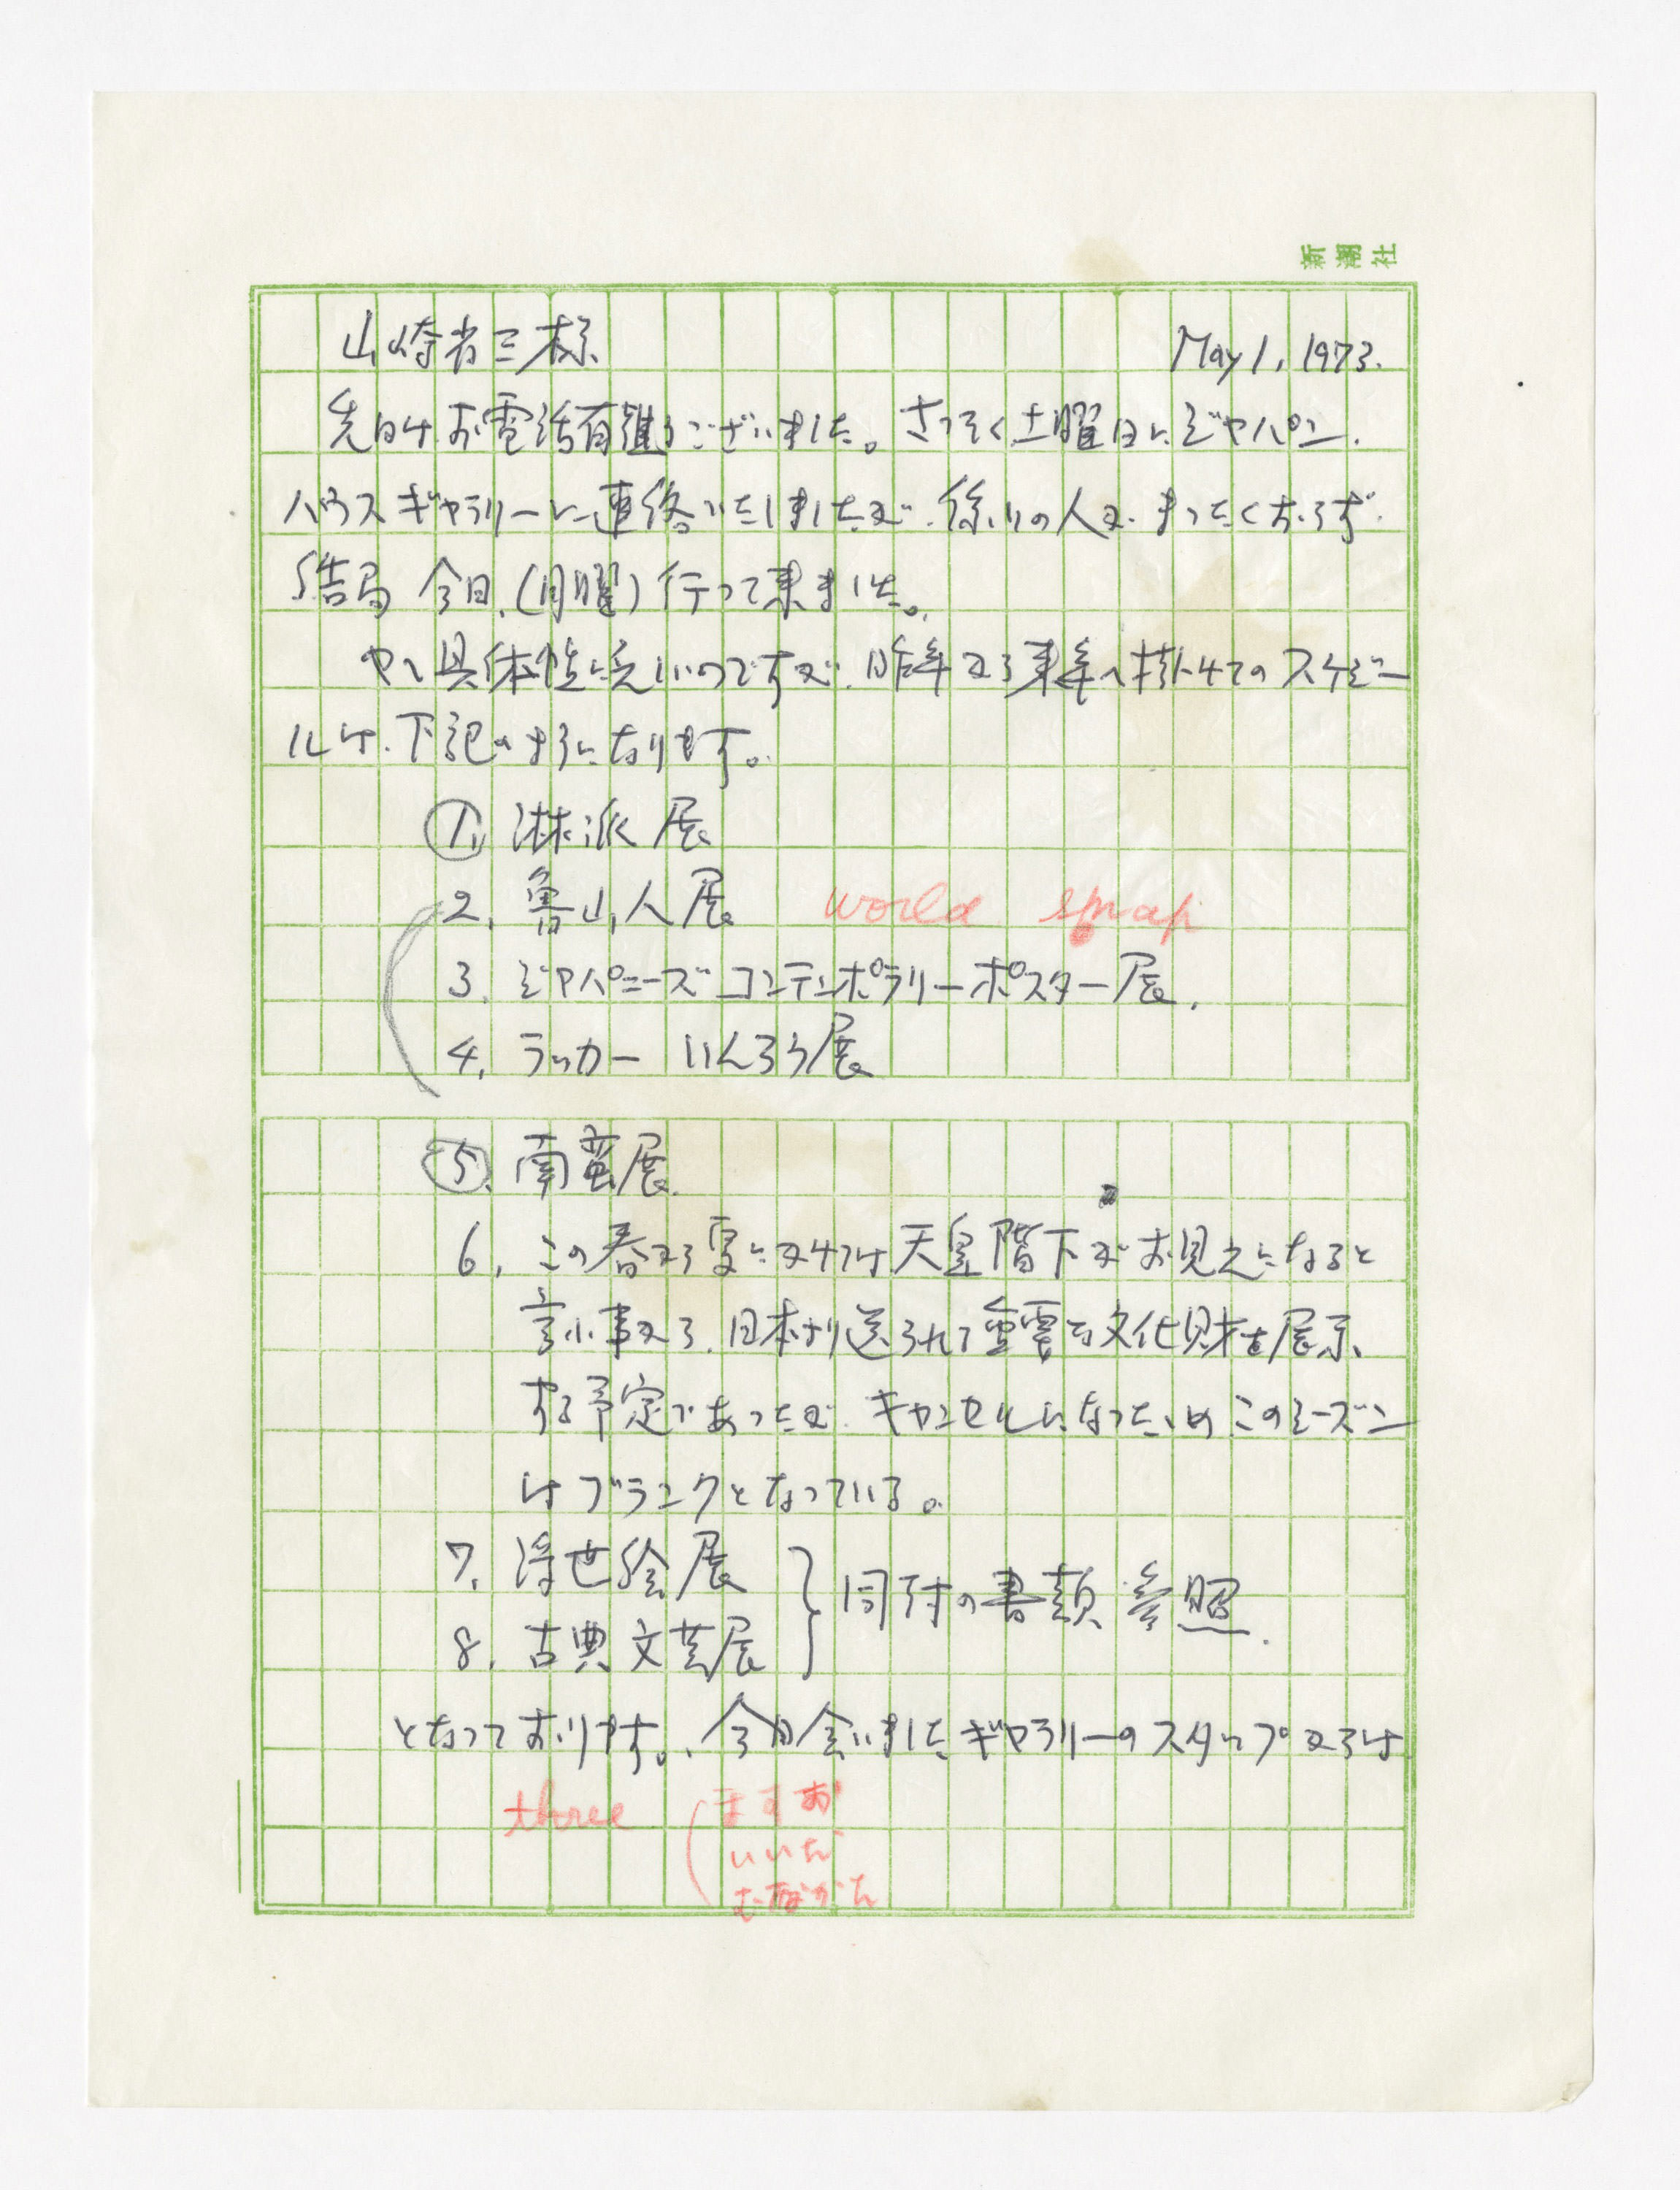 新潮社
山崎省三様 May 1, 1973.
先日はお電話有難うございました。さっそく土曜日にジャパン.
ハウスギャラリーに連絡いたしましたが、係りの人が、まったくおらず.
結局 今日、(月曜) 行って来ました。
やゝ具体性に乏しいのですが、昨年から来年へ掛けてのスケジュー
ルは、下記のようになります。
①. 淋派展
2. 魯山人展 world snap
3. ジャパニーズコンテンポラリーポスター展.
4. ラッカー いんろう展
⑤. 南蛮展.
6. この春から夏にかけては天皇階下がお見えになると
言ふ事から、日本より送られて重要な文化財を展示、
する予定であったが、キャンセルになったゝめ このシーズン
はブランクとなっている。
7. 浮世絵展
8. 古典文芸展
} 同封の書類 参照.
となっております。今日会いましたギャラリーのスタッフからは
three
ますお
いいだ
むなかた